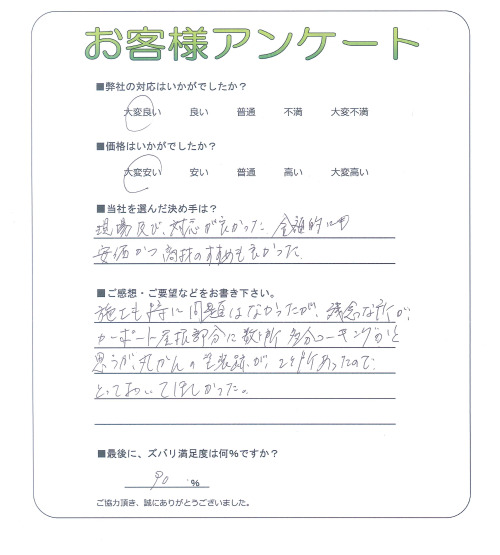 お客様アンケート
■弊社の対応はいかがでしたか？
大変良い 良い 普通 不満 大変不満
■価格はいかがでしたか？
大変安い 安い 普通 高い 大変高い
■当社を選んだ決め手は？
現場及び、対応が良かった。金額的にも
安価かつ商材のすすめも良かった。
■ご感想・ご要望などをお書き下さい。
施工も特に問題はなかったが、残念な所が、
カーポート屋根部分に数ヶ所 多分コーキングかと
思うが、丸がんの跡が、2ヶ所あったので
とっておいてほしかった。
■最後に、ズバリ満足度は何%ですか？
90 %
ご協力頂き、誠にありがとうございました。